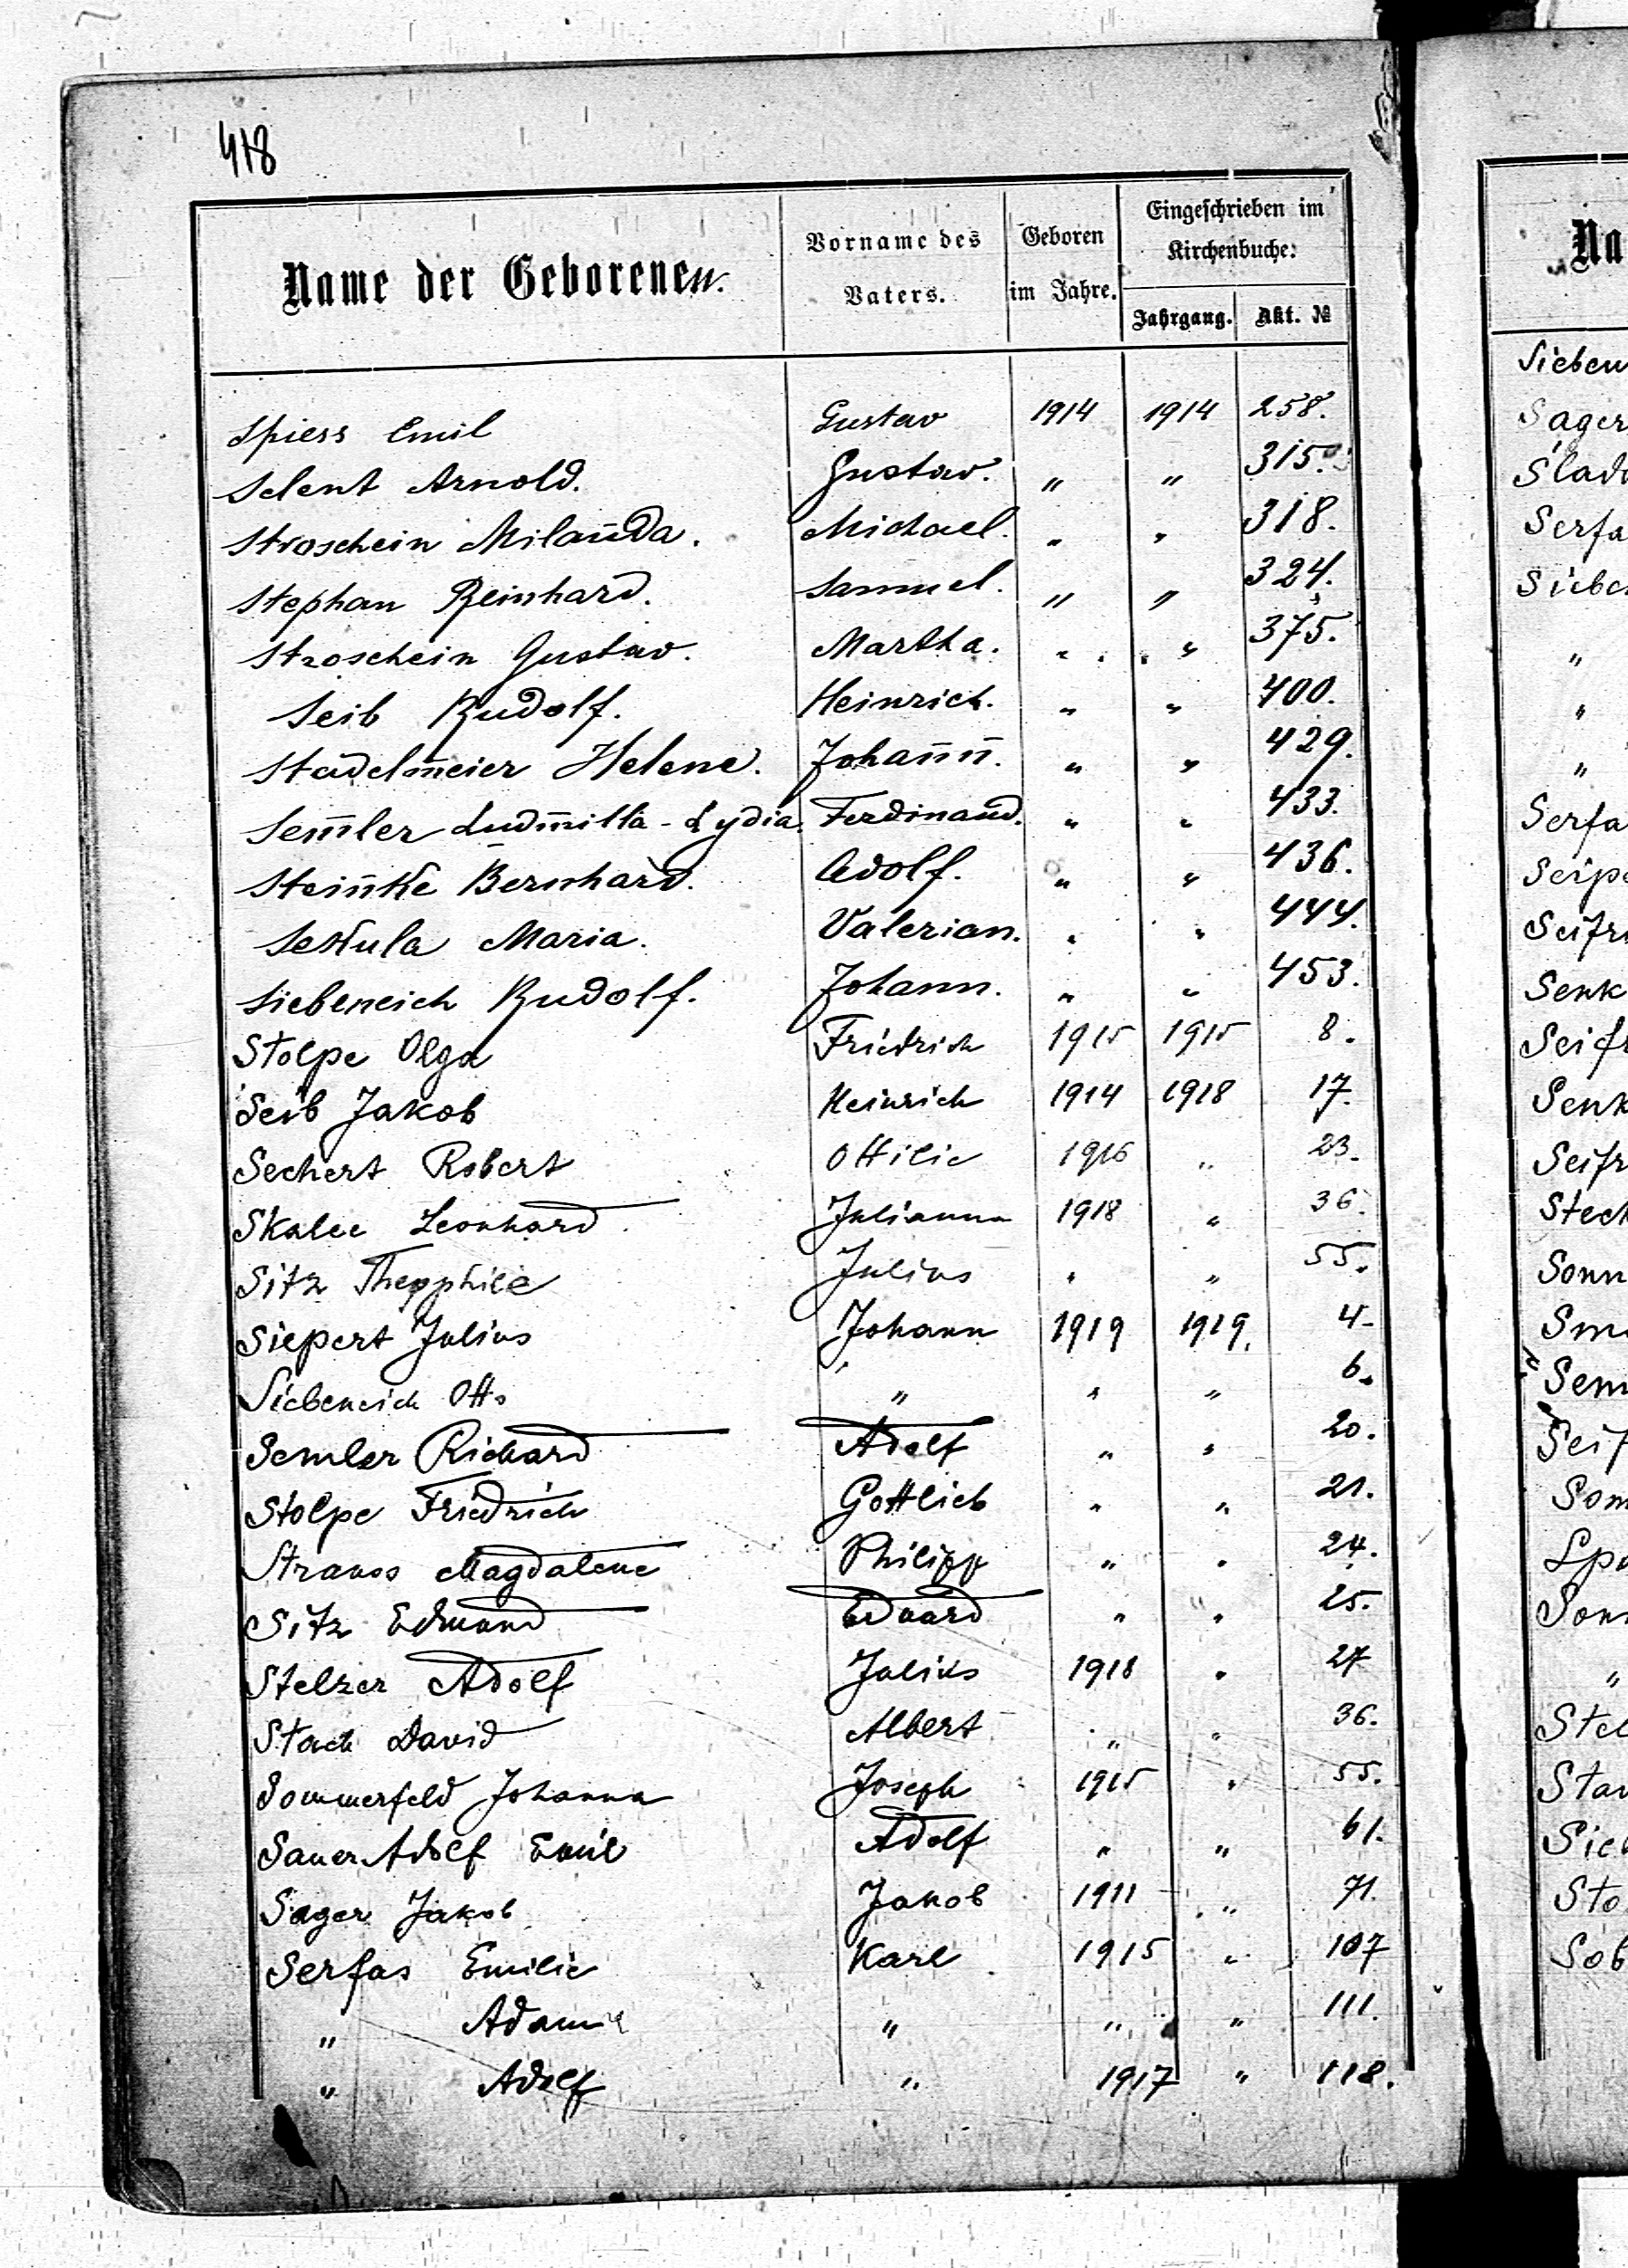 418
Name der Geborenen.
Vorname des Vaters.
Geboren im Jahre.
Eingeschrieben im Kirchenbuche:
Jahrgang. Akt. №
Spiess Emil Gustav 1914 1914 258.
Selent Arnold. Gustav. " " 315.
Stroschein Milanda. Michael. " " 318.
Stephan Reinhard. Samuel. " " 324.
Stroschein Gustav. Martha. " " 375.
Seib Rudolf. Heinrich. " " 400.
Stadelmeier Helene. Johann. " " 429.
Semler Ludmilla-Lydia. Ferdinand. " " 433.
Steinke Bernhard. Adolf. " " 436.
Maria. Valerian. " " 444.
Siebeneich Rudolf. Johann. " " 453.
Stolpe Olga Friedrich 1915 1915 8.
Seib Jakob Heinrich 1914 1918 17.
Sechert Robert Ottilie 1916 " 23.
Skalec Leonhard Julianna 1918 " 36.
Sitz Theophile Julius " " 55.
Siepert Julius Johann 1919 1919. 4.
Siebeneich Otto " " " 6.
Semler Richard Adolf " " 20.
Stolpe Friedrich Gottlieb " " 21.
Strauss Magdalene Philipp " " 24.
Sitz Edmund Eduard " " 25.
Stelzer Adolf Julius 1918 " 27
Stach David Albert " " 36.
Sommerfeld Johanna Joseph 1915 " 55.
Sauer Adolf Emil Adolf " " 61.
Sager Jakob Jakob 1911 " 71.
Serfas Emilie Karl 1915 " 107
" " " " 111.
" Adolf " 1917 " 118.
Na
Sieben
Sager
Slad
Serfa
Siebe
"
"
"
Serfa
Seipe
Seifr
Senk
Seif
Senk
Seifr
Stech
Sonn
Sm
Sem
Seif
Som
Sp
Son
"
Stel
Sta
Sie
Sto
Sob